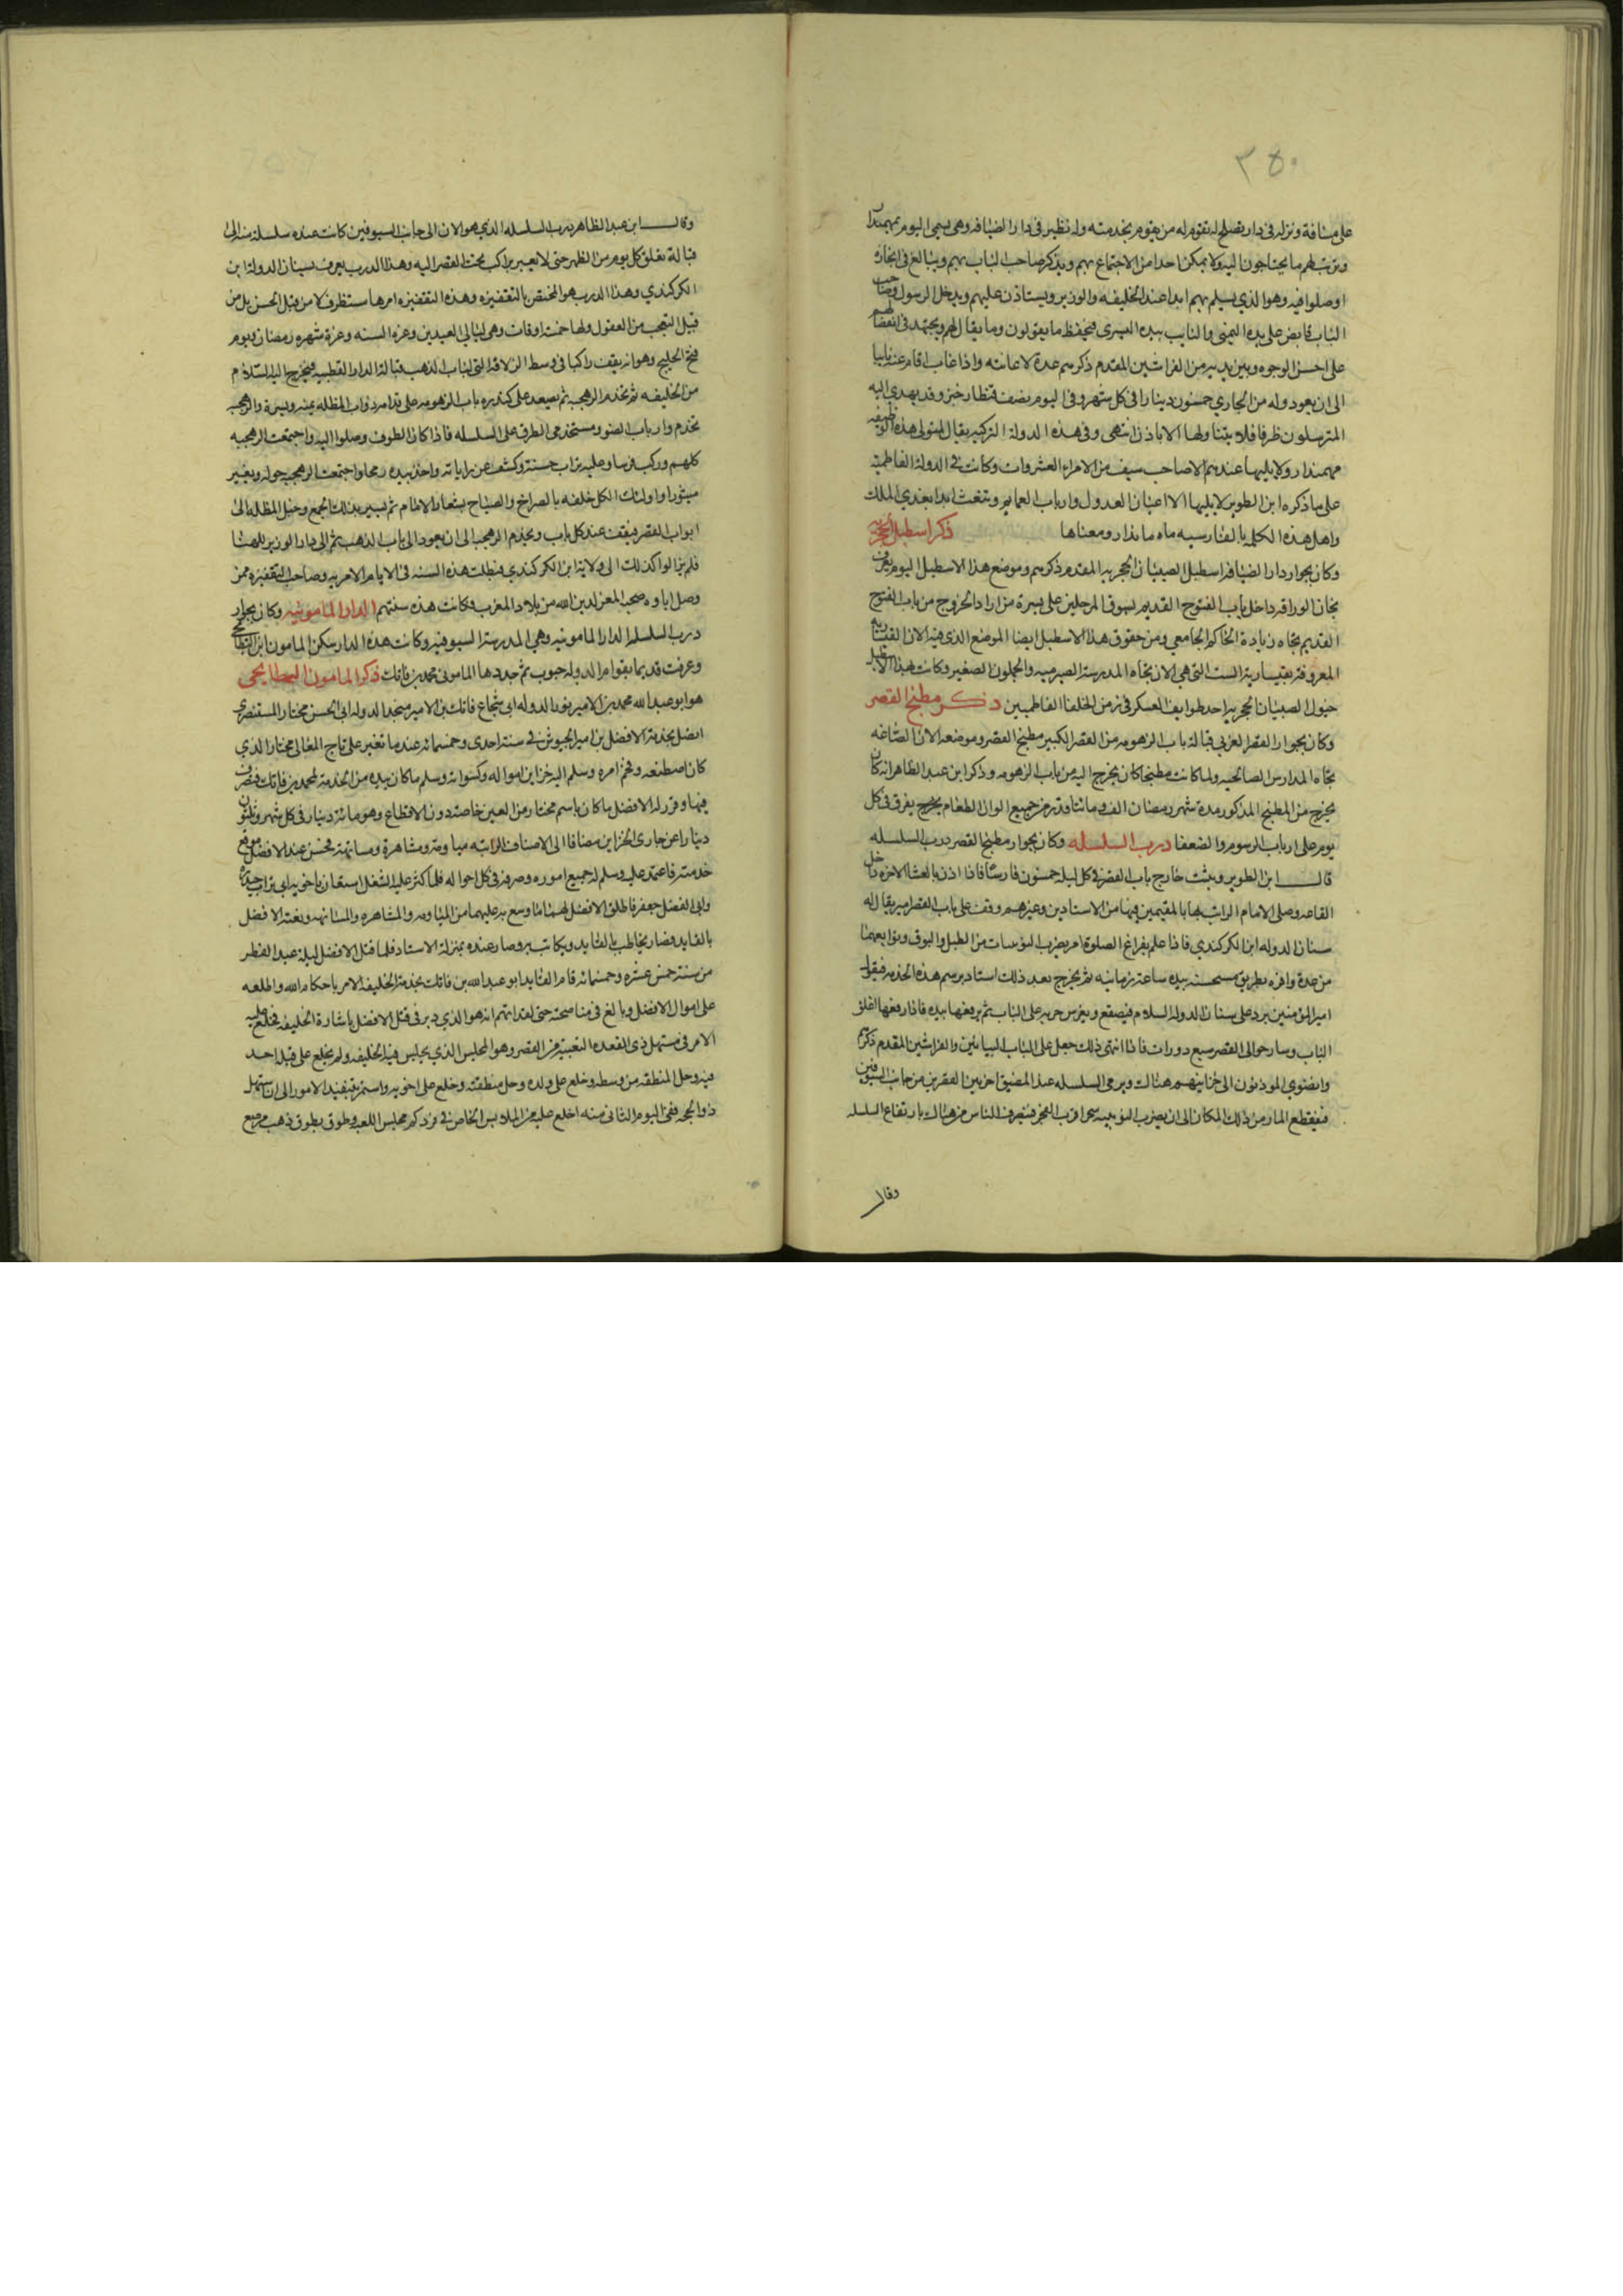 ٣٥٠
على مسافة ونزله في دار يصلح له تقوم له من يقوم بخدمته وله نظير في دار الضيافه وهى يسمى اليوم بمهمندار
ويرتب لهم ما يحتاجون اليه ولا يمكن احدا من الاجتماع بهم ويذكر صاحب الباب بهم ويبالغ في انجاز
اوصلوا فيه وهو الذي يسلم بهم ابدا عند الخليفه والوزير ويستاذن عليهم ويدخل الرسول وصاحب
الباب قابض على يده اليمنى والنايب بيده اليسرى فيحفظ ما يقولون وما يقال لهم ويجتهد في انفصالهم
على احسن الوجوه وبين يديه من الفراشين المقدم ذكرهم عدة لاعانته واذا غاب اقام عنه نايبا
الى ان يعود وله من الجاري خمسون دينارا في كل شهر وفي اليوم نصف قنطار خبز وقد يهدي اليه
المترسلون ظرفا فلا يتناولها الا باذن انتهى وفي هذه الدولة التركيه يقال لمتولى هذه الوظيفه
مهمندار ولا يليها عندهم الا صاحب سيف من الامراء العشروات وكانت في الدولة الفاطميه
على ما ذكره ابن الطوير لا يليها الا اعيان العدول وارباب العمايم وينعت ابدا بعدي الملك
واهل هذه الكلمه بالفارسيه ماه ماندار ومعناها ذكر اسطبل الحجريه
وكان بجوار دار الضيافه اسطبل الصبيان الحجريه المقدم ذكرهم وموضع هذا الاسطبل اليوم يعرف
بخان الوراقه داخل باب الفتوح القديم بسوق المرحلين على يسرة من اراد الخروج من باب الفتوح
القديم تجاه زيادة الحاكم الجامعي ومن حقوق هذا الاسطبل ايضا الموضع الذي فيه الان القيساريه
المعروفه بقيسارية الست التي هي الان تجاه المدرسة الصيرميه والجملون الصغير وكانت هذا الاسطبل
خيول الصبيان الحجريه احد طوايف العسكر في زمن الخلفا الفاطميين ذكر مطبخ القصر
وكان بجوار القصر الغربي قبالة باب الزهومه من القصر الكبير مطبخ القصر وموضعه الان الصاغه
تجاه المدارس الصالحيه ولما كانت مطبخا كان يخرج اليه من باب الزهومه وذكر ابن عبد الظاهر انه كان
يخرج من المطبخ المذكور مدة شهر رمضان الف ومائتا قدر من جميع الوان الطعام يخرج يفرق في كل
يوم على ارباب الرسوم والضعفا درب السلسله وكان بجوار مطبخ القصر درب السلسله
قال ابن الطوير ويبيت خارج باب القصر في كل ليلة خمسون فارسا فاذا اذن بالعشا الاخره داخل
القاعه وصلى الامام الراتب بها بالمقيمين فيها من الاستادين وغيرهم وقف على باب القصر امير يقال له
سنان الدوله ابن الكركندي فاذا علم بفراغ الصلوة امر بضرب النوبات من الطبل والبوق وتوابعهما
من عدة وافره بطريق مستحسنه بيده ساعة زمانيه ثم يخرج بعد ذلك استاد برسم هذه الخدمه فيقول
امير المؤمنين يرد على سنان الدولة السلام فيصقع ويغرس حربه على الباب ثم يرفعها بيده فاذا رفعها اغلق
الباب وسار حوالى القصر سبع دورات فاذا انتهى ذلك جعل على الباب البياتين والفراشين المقدم ذكرهم
وانضوى الموذنون الى خزاينهم هناك ورمى السلسله عند المضيق اخر بين القصرين من جانب السيوفين
فينقطع المار من ذلك المكان الى ان يضرب النوبه سحرا قرب الفجر فينصرف الناس من هناك بارتفاع السلسله
وقال
وقال ابن عبد الظاهر درب السلسله الذي هو الان الى جانب السيوفين كانت عنده سلسلة منه الى
قبالة يغلق كل يوم من الظهر حتى لا يعبر راكب تحت القصر اليه وهذا الدرب يعرف بسنان الدوله ابن
الكركندي وهذا الدرب هو المختص بالتقفيزه وهذه التقفيزه امرها مستظرف لا من قبل الحسن بل من
قبل التعجب من العقول ولها خمسة اوقات وهي ليالى العيدين وغرة السنه وغرة شهر رمضان ويوم
فتح الخليج وهو انه يقف راكبا في وسط الزلاقة التي لباب الذهب قبالة الدار القطبيه فيخرج اليه السلام
من الخليفه ثم تخدم الرهجيه ثم يصعد على كندره باب الزهومه على قدامه دواب المظله يمنه ويسرة والرهجيه
تخدم وارباب الضو ومستخدمى الطرق على السلسله فاذا كان الطوف وصلوا اليه واجتمعت الرهجيه
كلهم وركب فرسا وعليه ثياب حسنة وكشف عن راياته واخذ بيده رمحا واجتمعت الرهجيه حوله ويعبر
مبثورا واولئك الكل خلفه بالصراخ والصياح بشعار الامام ثم يسير بذلك الجمع وخيل المظله الى
ابواب القصر فيقف عند كل باب ويخدم الرهجيه الى ان يعود الى باب الذهب ثم الى دار الوزير للهنا
فلم يزالوا كذلك الى ولاية ابن الكركندي فبطلت هذه السنه في الايام الامريه وصاحب التقفيزه ممن
وصل اباوه صحبه المعز لدين الله من بلاد المغرب فكانت هذه سنتهم الدار المامونيه وكان بجوار
درب السلسله الدار المامونيه وهي المدرسة السيوفيه وكانت هذه الدار سكن المامون ابن البطايحي
وعرفت قديما بقوام الدوله حبوب ثم جددها المامون محمد بن فاتك ذكر المامون البطايحي
هو ابو عبد الله محمد بن الامير نور الدوله ابى شجاع فاتك بن الامير منجد الدوله ابى الحسن مختار المستنصرى
اتصل بخدمة الافضل بن امير الجيوش في سنة احدى وخمسمائه عند ما تغير على تاج المعالى مختار الذي
كان اصطنعه وفخم امره وسلم اليه خزاين امواله وكسواته وسلم ما كان بيده من الخدمه لمحمد بن فاتك فتصرف
فيها وقرر له الافضل ما كان باسم مختار من العين خاصة دون الاقطاع وهو مائة دينار في كل شهر وثلثون
دينارا عن جارى الخزاين مضافا الى الاصناف الراتبه مياومة ومشاهرة ومسانهة فحسن عند الافضل موقع
خدمته فاعتمد عليه وسلم له جميع اموره وصرفه في كل احواله فلما كثر عليه الشغل استعان باخويه ابى تراب حيدره
وابى الفضل جعفر فاطلق الافضل لهما ما وسع به عليهما من المياومه والمشاهره والمسانهه ونعته الافضل
بالقايد فصار يخاطب بالقايد ويكاتب به وصار عنده بمنزلة الاستاد فلما قتل الافضل ليلة عيد الفطر
من سنة خمس عشره وخمسمائه قام القايد ابو عبد الله بن فاتك بخدمة الخليفه الامر باحكام الله واطلعه
على اموال الافضل وبالغ في مناصحته حتى لقد اتهم انه هو الذي دبر في قتل الافضل باشارة الخليفه فخلع عليه
الامر في مستهل ذى القعده التعبية من القصر وهو المجلس الذي يجلس فيه الخليفه ولم يخلع على قبله احد
فيه وحل المنطقه من وسطه وخلع على ولده وحل منطقته وخلع على اخويه واستمر بتنفيذ الامور الى ان استهل
ذو الحجه ففى اليوم الثانى منه اخلع عليه من الملابس الخاص في فرد كم مجلس اللعبه وطوق بطوق ذهب مرصع